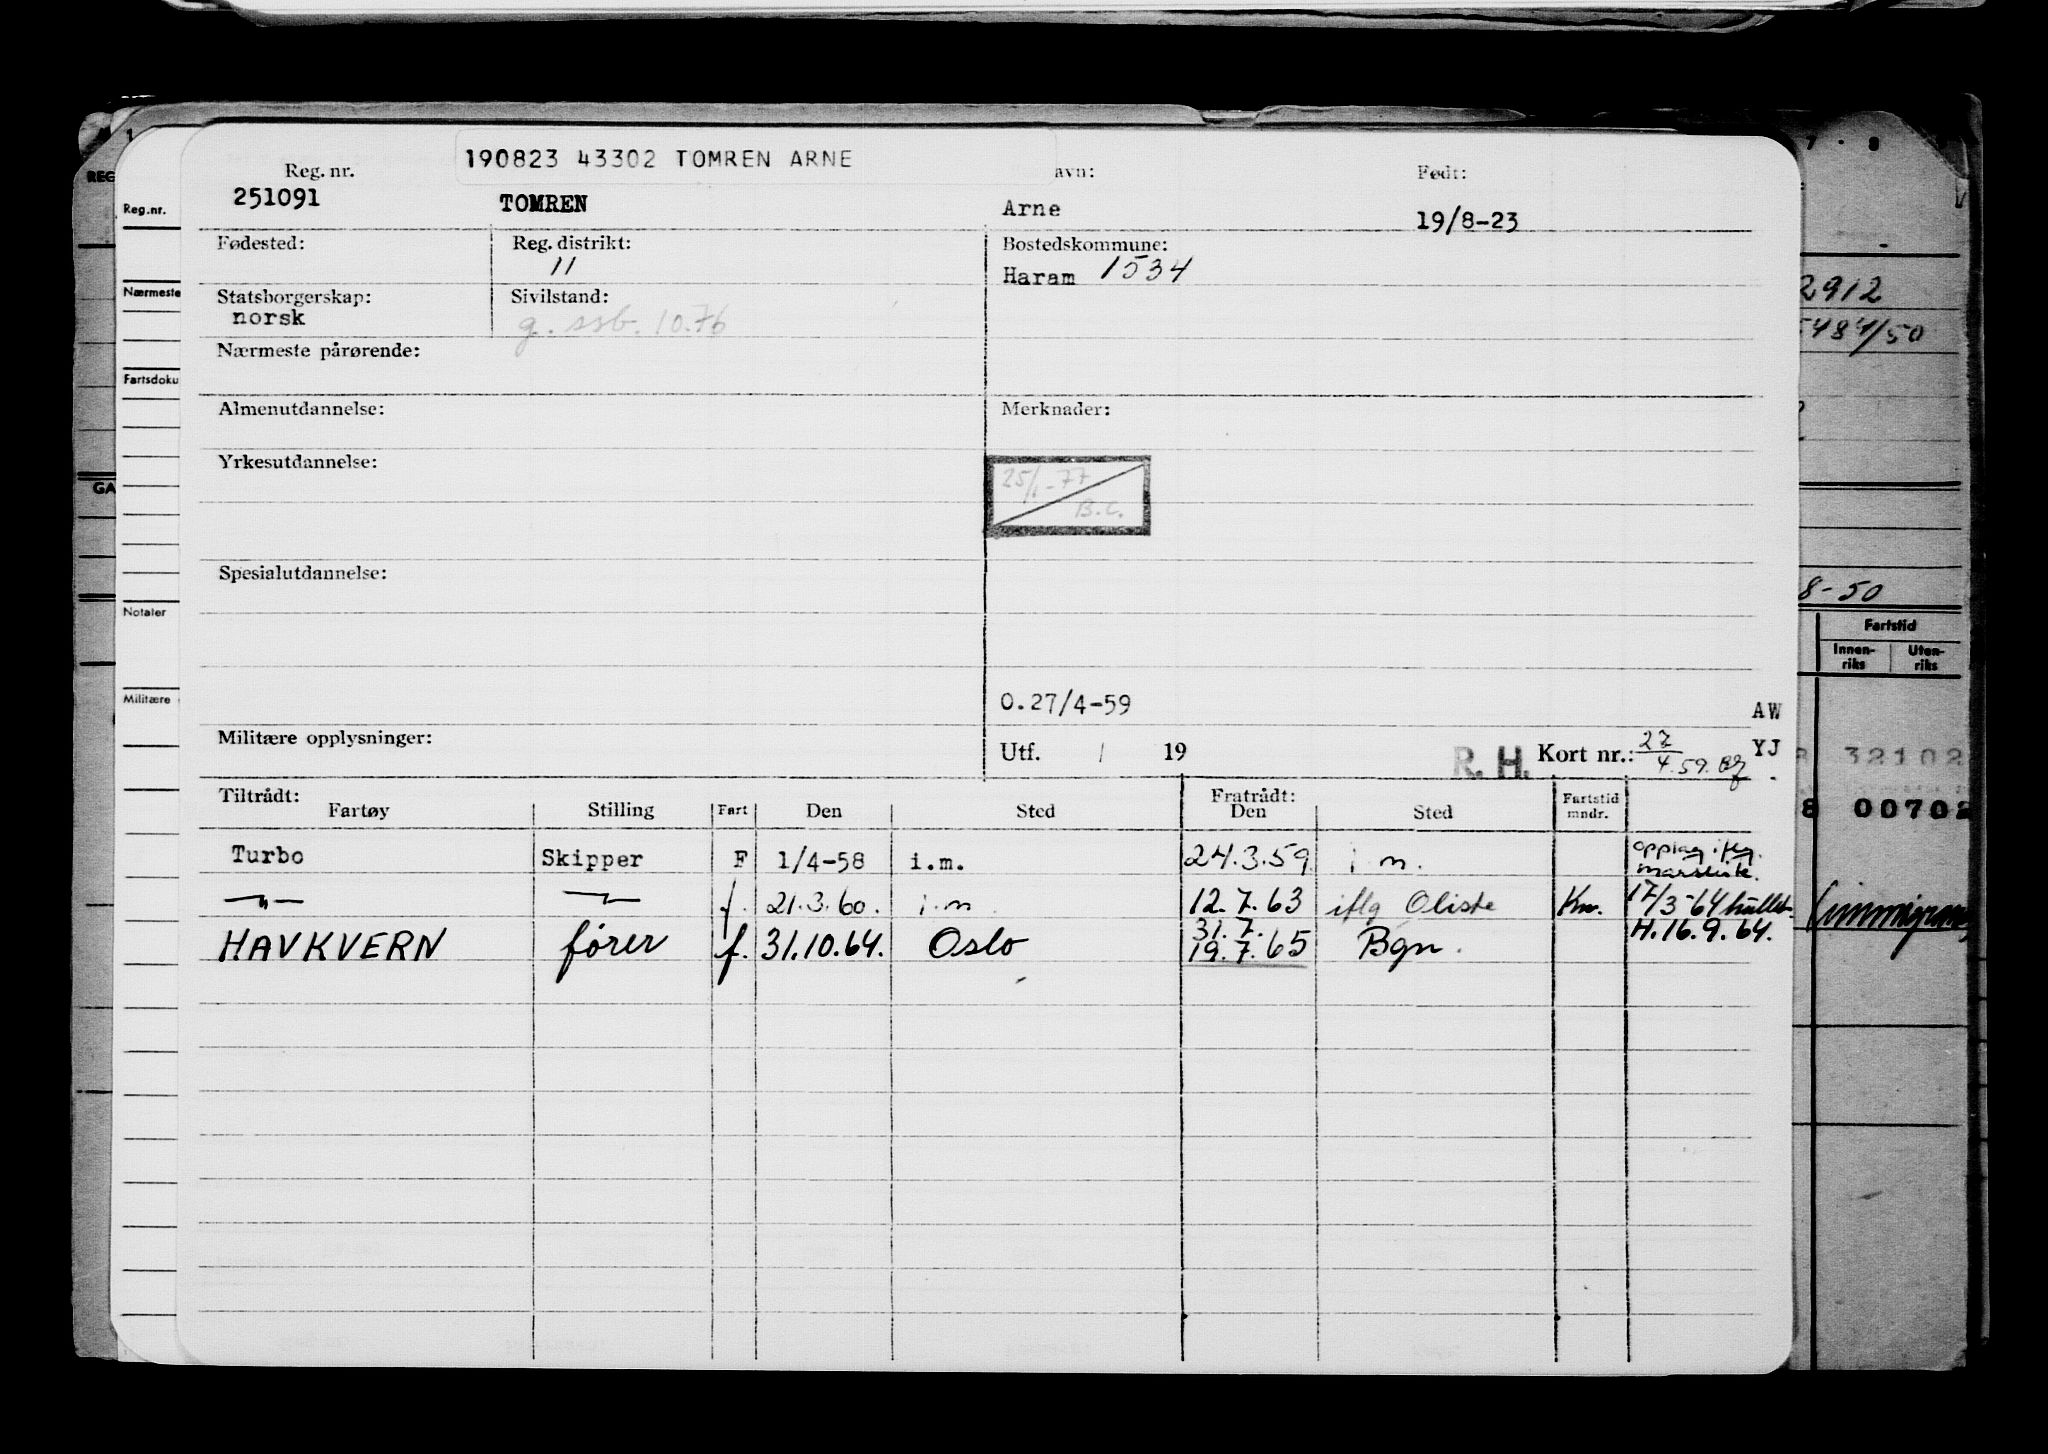 190823 43302 TOMREN ARNE
Reg. nr. avn: Født:
251091 TOMREN Arne 19/8-23
Fødested: Reg. distrikt: Bostedskommune:
11 Haram 1534
Statsborgerskap: Sivilstand:
norsk g. ssb. 10.76
Nærmeste pårørende:
Almenutdannelse: Merknader:
Yrkesutdannelse:
25/1-77
B.C.
Spesialutdannelse:
O.27/4-59
AW
Militære opplysninger: Utf. / 19 R. H. Kort nr.: 27/4.59. YJ
Tiltrådt: Fratrådt:
Fartøy Stilling Fart Den Sted Den Sted Fartstid mndr.
Turbo Skipper F 1/4-58 i.m. 24.3.59. i.m. opplag iflg. mansliste.
—"— —"— f. 21.3.60. i.m. 12.7.63 iflg Oliste Kn. 17/3-64 hullet.
31.7. H.16.9.64.
HAVKVERN fører f. 31.10.64. Oslo 19.7.65 Bgn.
REG
Reg.nr.
Nærmeste
Fartsdoku
GA
Notater
Militære
7 · 8
2912
5484/50
8-50
Fartstid
Innen-riks Uten-riks
32102
8 00702